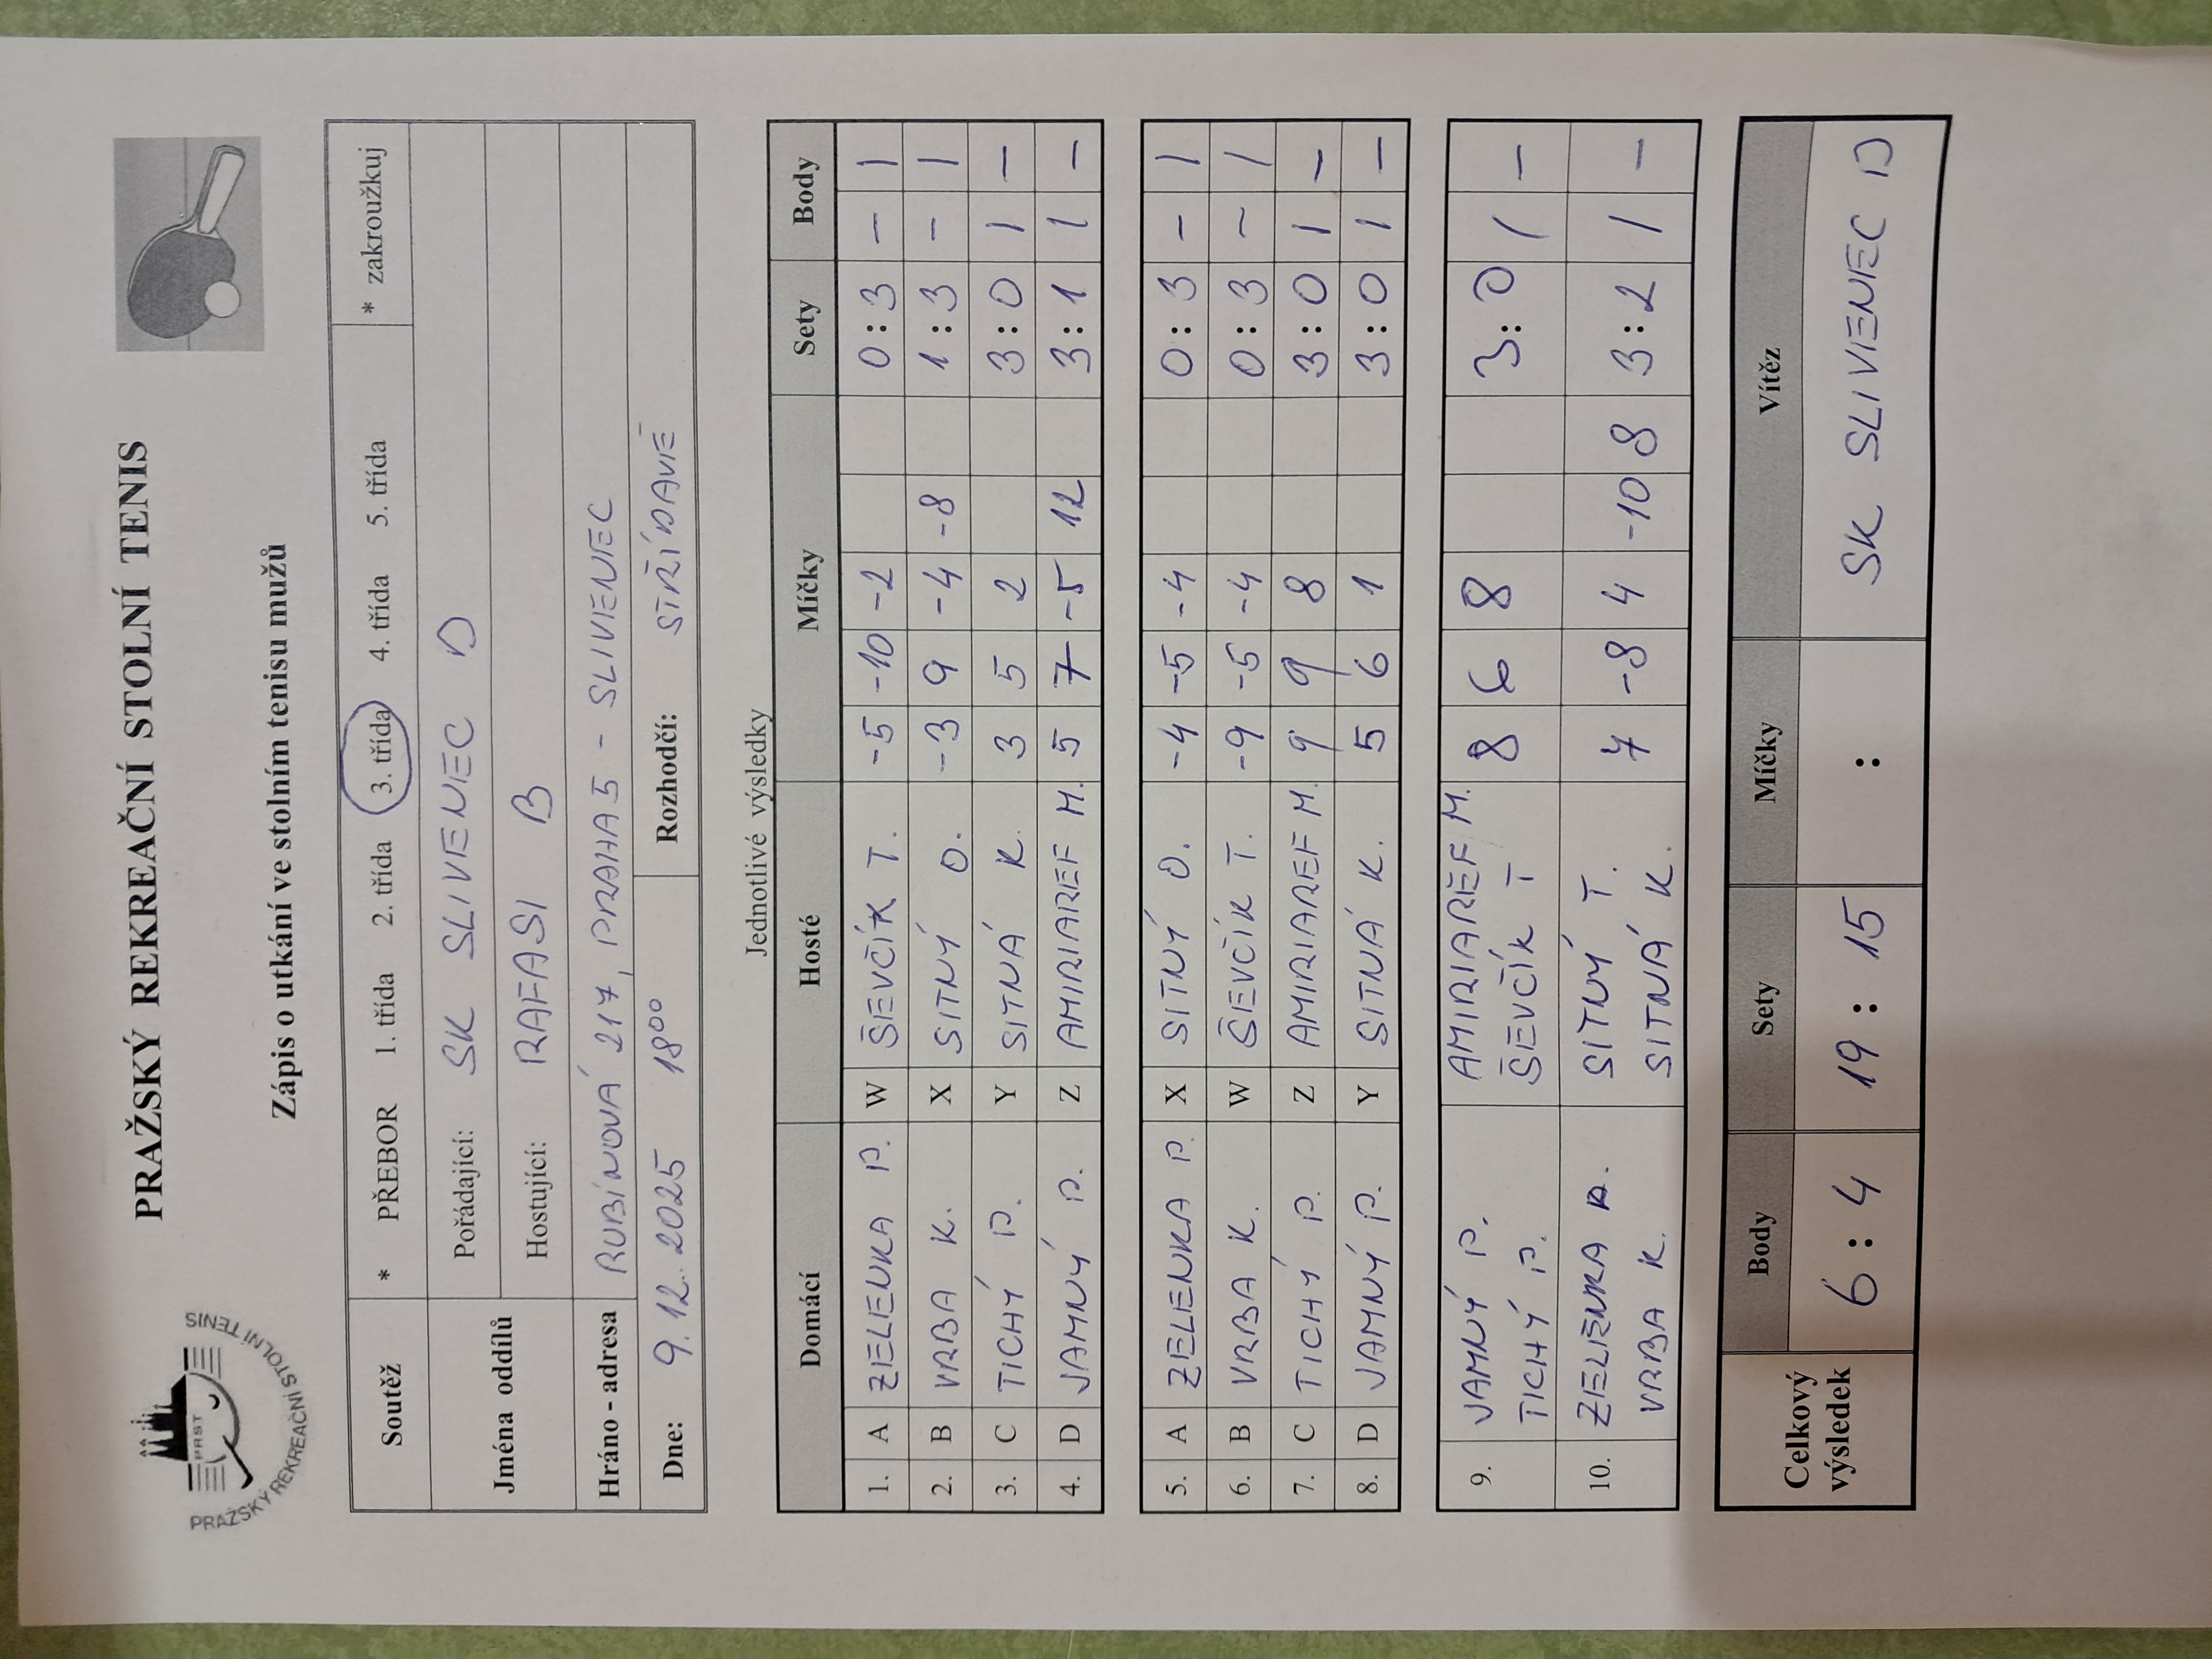 PRAŽSKÝ REKREAČNÍ STOLNÍ TENIS
PRST
PRAŽSKÝ REKREAČNÍ STOLNÍ TENIS
Zápis o utkání ve stolním tenisu mužů
Soutěž * PŘEBOR 1. třída 2. třída 3. třída 4. třída 5. třída * zakroužkuj
Jména oddílů
Pořádající: SK SLIVENEC D
Hostující: RAFASI B
Hráno - adresa RUBÍNOVÁ 217, PRAHA 5 - SLIVENEC
Dne: 9.12.2025 18⁰⁰ Rozhodčí: STŘÍDAVĚ
Jednotlivé výsledky
Domácí Hosté Míčky Sety Body
1. A ZELENKA P. W ŠEVČÍK T. -5 -10 -2 0 : 3 – 1
2. B VRBA K. X SITNÝ O. -3 9 -4 -8 1 : 3 – 1
3. C TICHÝ P. Y SITNÁ K. 3 5 2 3 : 0 1 –
4. D JAMNÝ P. Z AMIRIAREF M. 5 7 -5 12 3 : 1 1 –
5. A ZELENKA P. X SITNÝ O. -4 -5 -4 0 : 3 – 1
6. B VRBA K. W ŠEVČÍK T. -9 -5 -4 0 : 3 – 1
7. C TICHÝ P. Z AMIRIAREF M. 9 9 8 3 : 0 1 –
8. D JAMNÝ P. Y SITNÁ K. 5 6 1 3 : 0 1 –
9. JAMNÝ P. AMIRIAREF M. 8 6 8 3 : 0 1 –
TICHÝ P. ŠEVČÍK T
10. ZELENKA P. SITNÝ T. 7 -8 4 -10 8 3 : 2 1 –
VRBA K. SITNÁ K.
Celkový výsledek Body Sety Míčky Vítěz
6 : 4 19 : 15 : SK SLIVENEC D